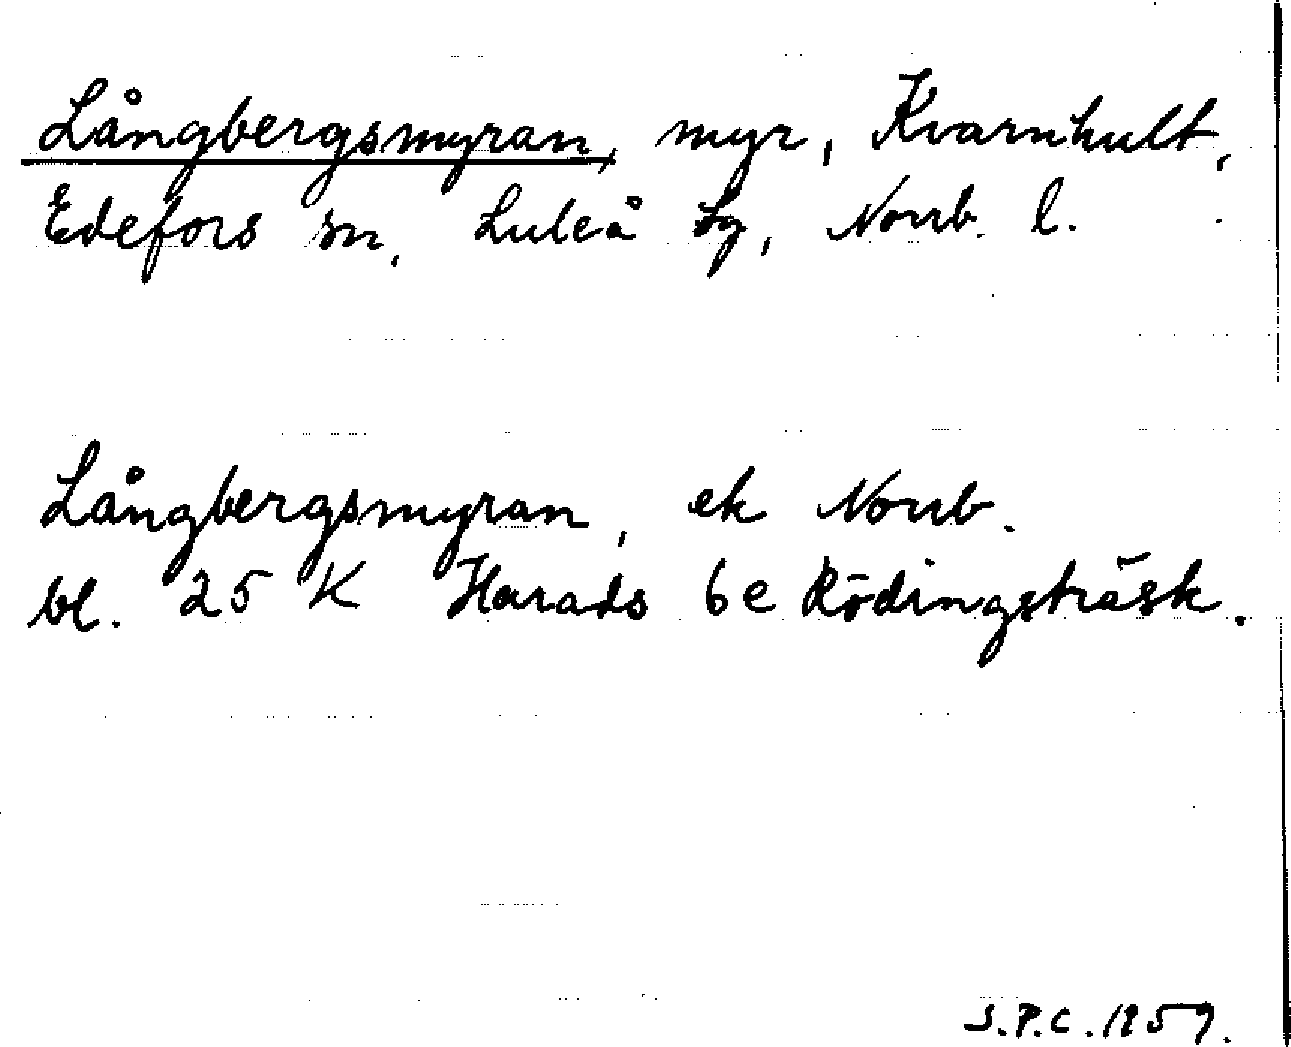 Långbergsmyran, myr, Kvarnhult,
Edefors sn, Luleå tg, Norrb. l.
Långbergsmyran, ek Norrb.
bl. 25 K Harads 6e Rödingsträsk.
S.P.C. 1959.